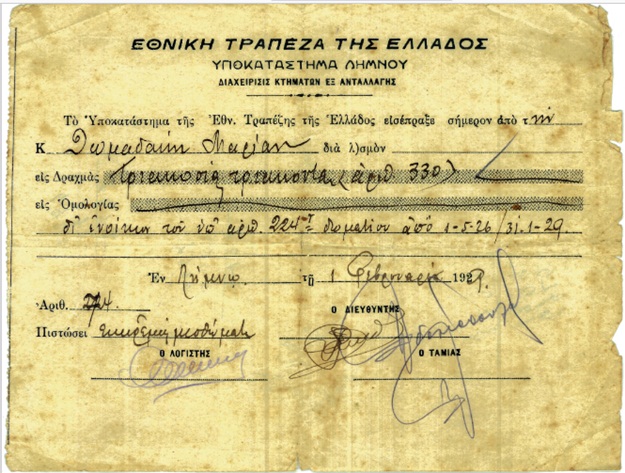 ΕΘΝΙΚΗ ΤΡΑΠΕΖΑ ΤΗΣ ΕΛΛΑΔΟΣ
ΥΠΟΚΑΤΑΣΤΗΜΑ ΛΗΜΝΟΥ
ΔΙΑΧΕΙΡΙΣΙΣ ΚΤΗΜΑΤΩΝ ΕΞ ΑΝΤΑΛΛΑΓΗΣ
Τὸ Ὑποκατάστημα τῆς Ἐθν. Τραπέζης τῆς Ἑλλάδος εἰσέπραξε σήμερον ἀπὸ τ ὴν
Κ Μαρίαν διὰ λ)σμὸν
εἰς Δραχμὰς Τριακοσίας τριάκοντα (ἀριθ. 330)
εἰς Ὁμολογίας
ὑπ' ἀριθ. 224 δωματίου ἀπὸ 1-5-26/31-1-29.
Ἐν Λήμνῳ τῇ 1 Φεβρουαρίου 1929.
Ἀριθ. 224.
Ο ΔΙΕΥΘΥΝΤΗΣ
Πιστώσει
Ο ΛΟΓΙΣΤΗΣ Ο ΤΑΜΙΑΣ